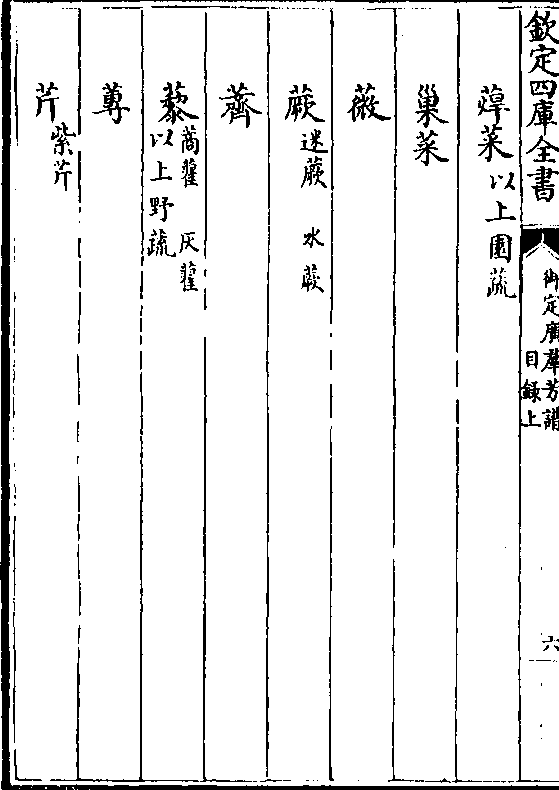 欽定四庫全書
御定廣羣芳譜
目録上
六
蔊菜 以上園蔬
巢菜
薇
蕨 迷蕨 水蕨
薺
藜 蔏藋 灰藋
以上野蔬
蓴
芹 紫芹